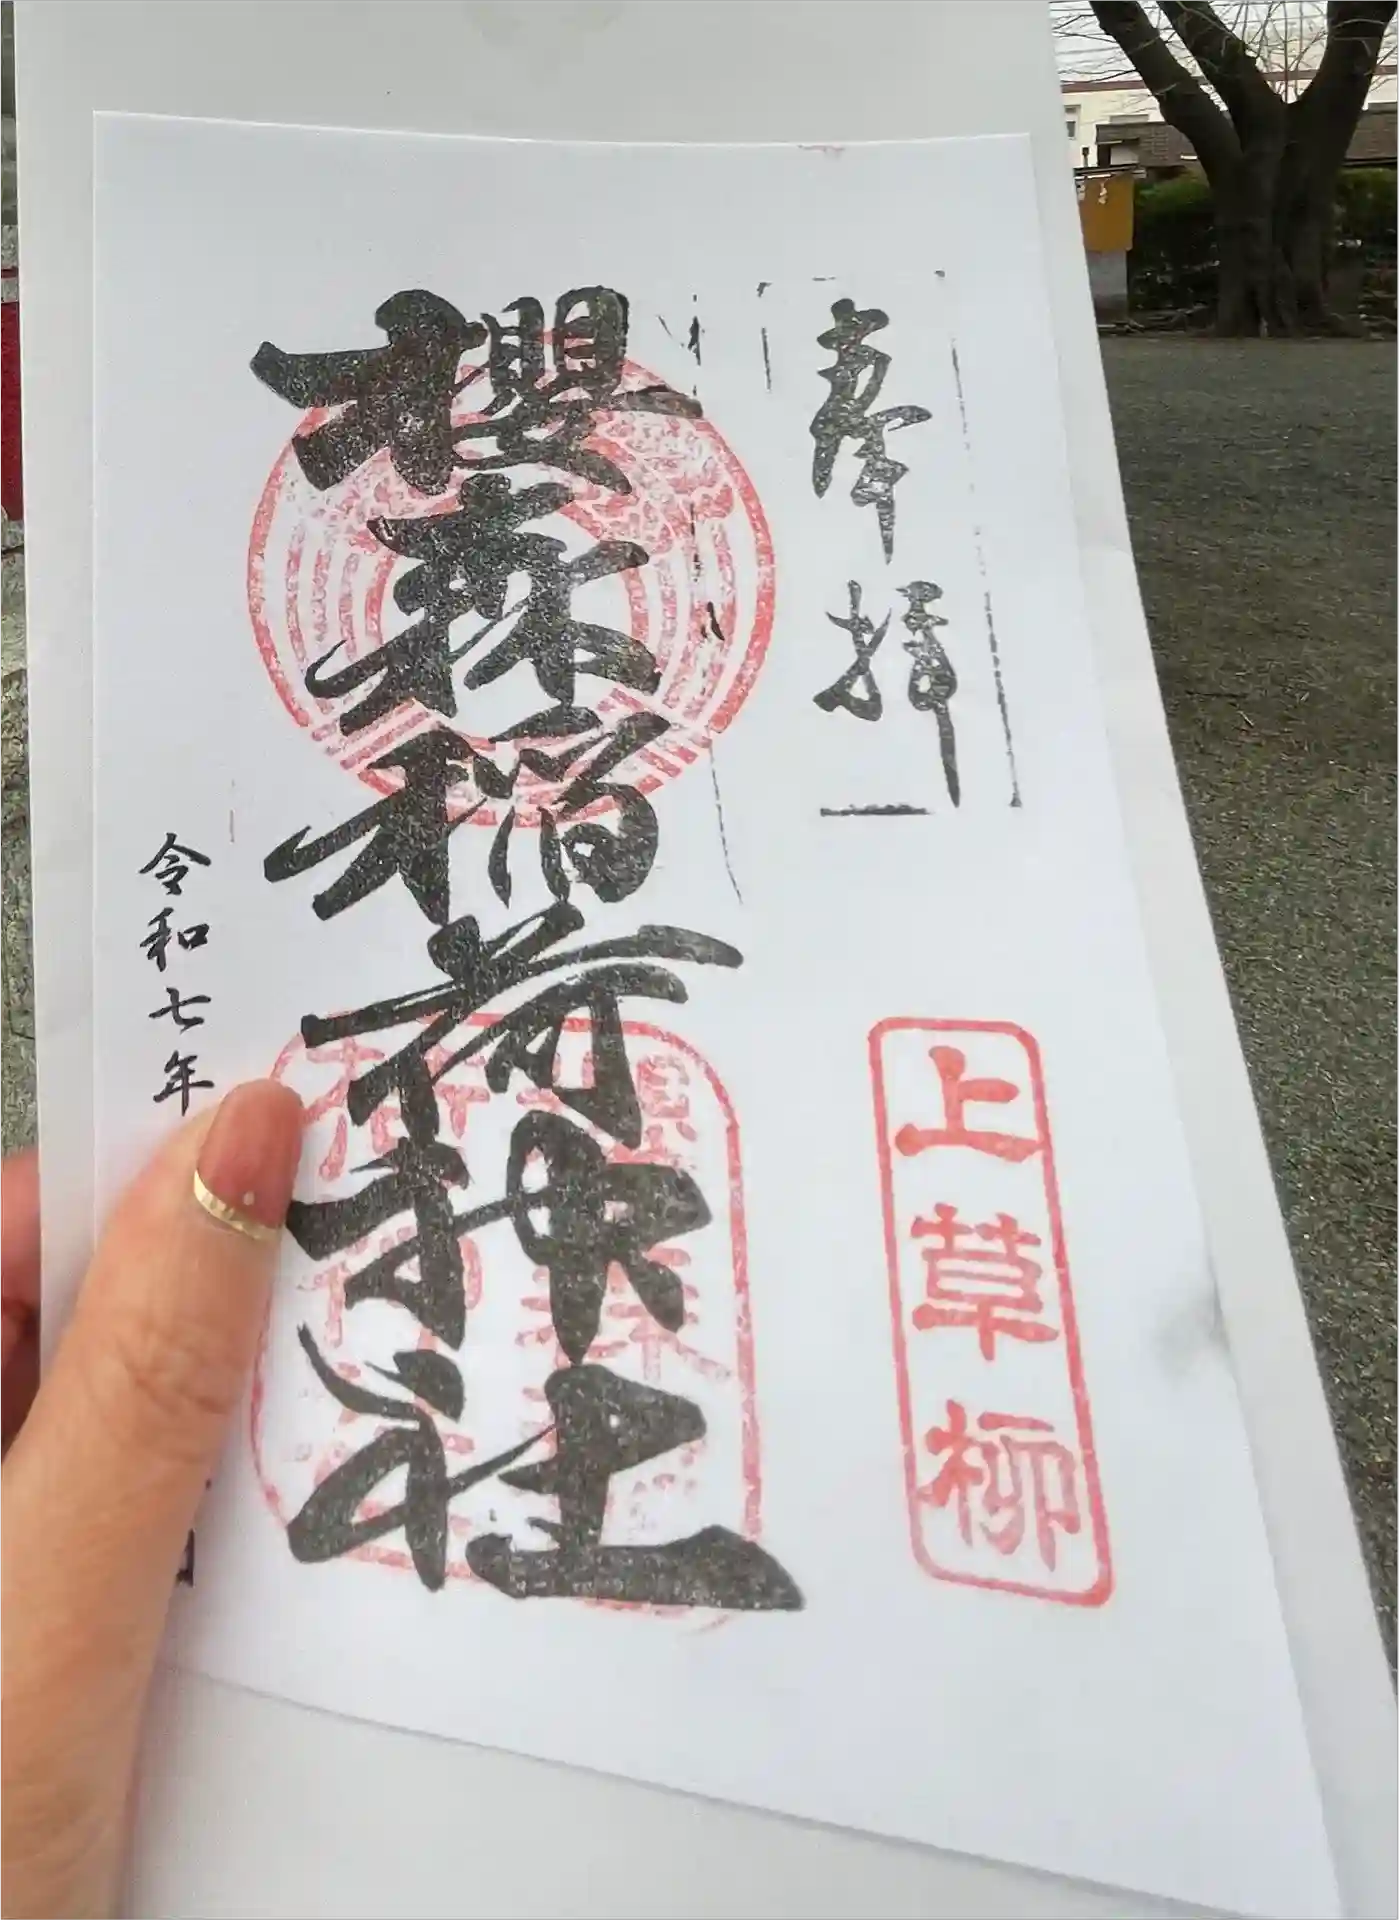 奉拝
上草柳
櫻森稲荷神社
令和七年